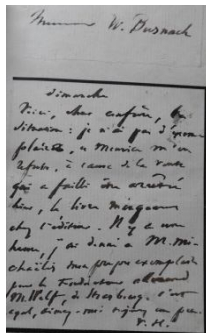 W. Busnach
dimanche
Voici, cher confrère, la
situation : je n'ai pas d'exem
plaire, et Meurice m'en
refuse, à cause de la vente
qui a failli être arrêtée
hier, le livre manquant
chez l'éditeur. Il y a une
heure, j'ai donné à M. Mi-
chaëlis mon propre exemplaire
pour le traducteur allemand
M. Wolf, de Marbourg. C'est
égal, aimez-moi
V. H.